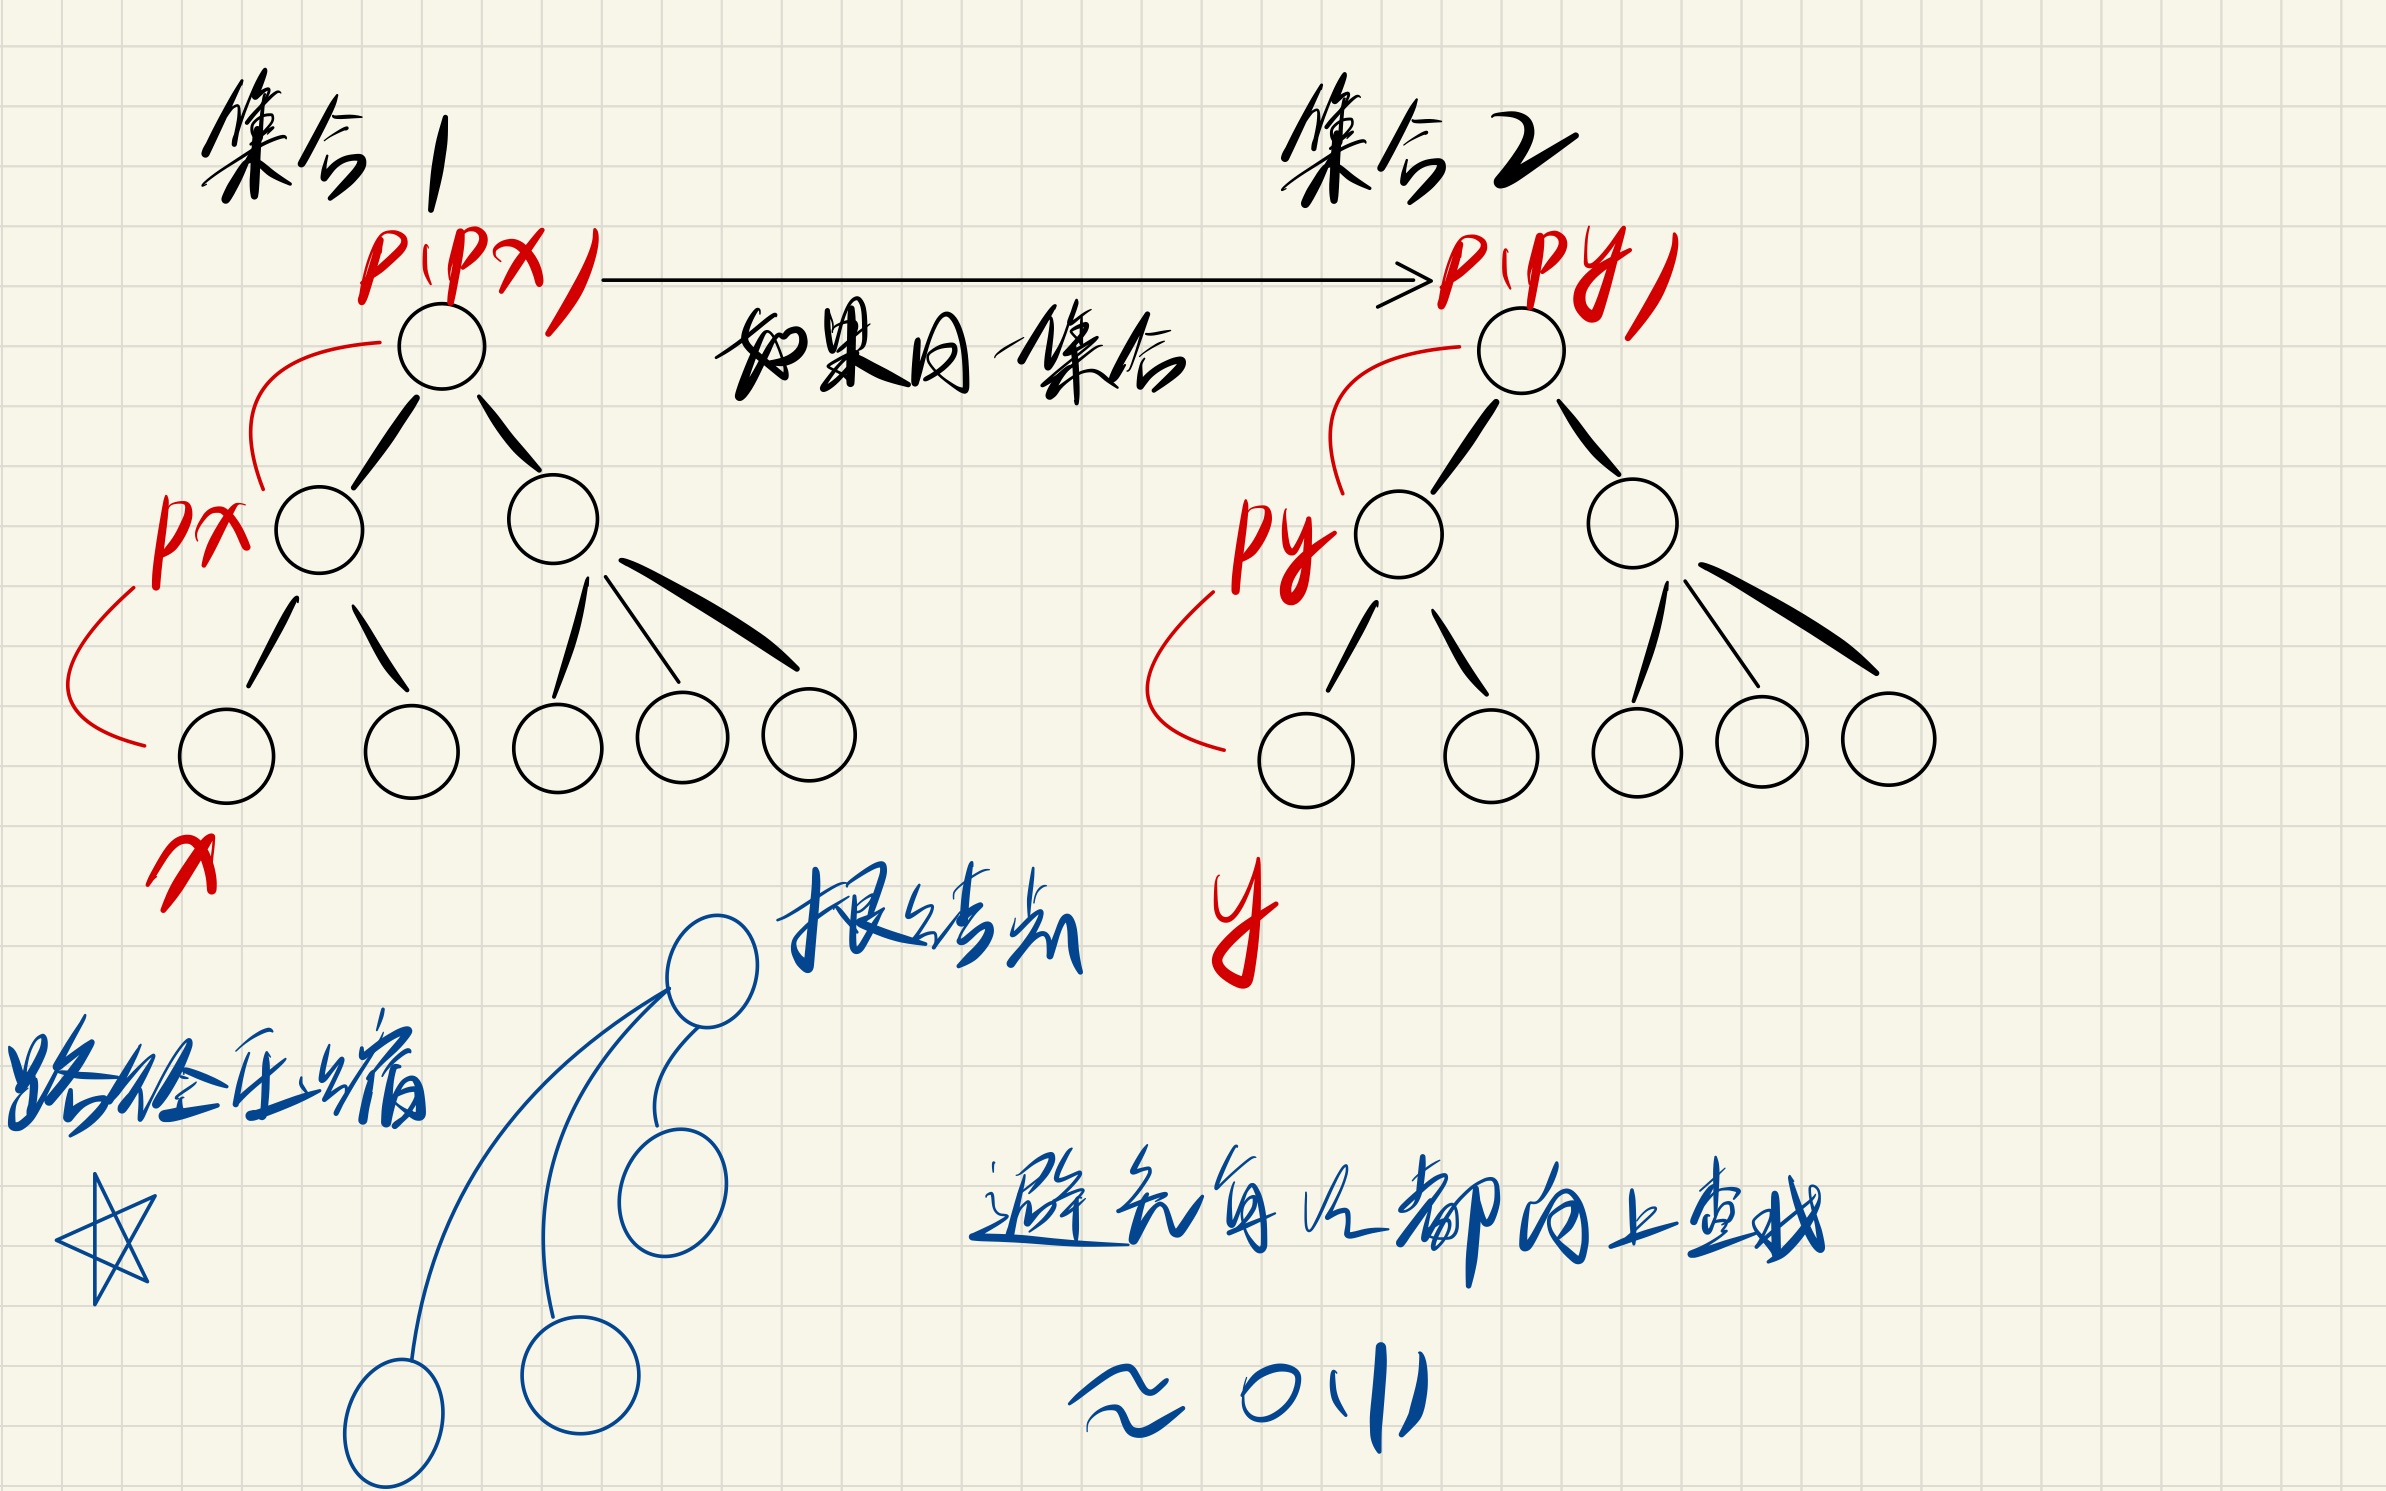 集合1
集合2
p(px)
p(py)
如果同一集合
px
py
x
y
根结点
路径压缩
避免每次都向上查找
≈ O(1)